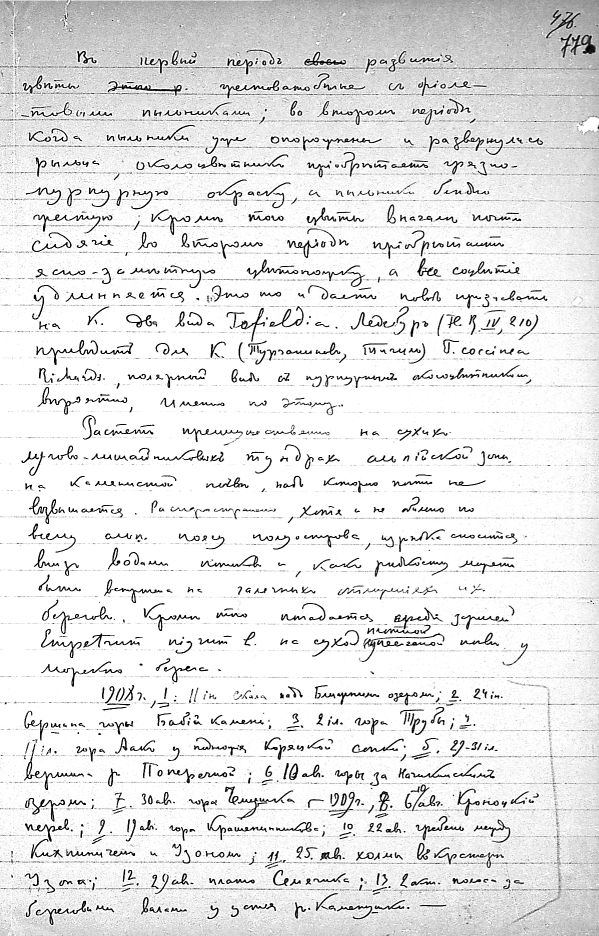 476.
779
Въ первый періодъ своего развитія
цвѣты желтоватобѣлые съ фіоле-
товыми пыльниками; во второмъ періодѣ,
когда пыльники уже опорожнены и развернулись
рыльца, околоцвѣтникъ пріобрѣтаетъ грязно-
пурпурную окраску, а пыльники блѣдно
желтую; кромѣ того цвѣты вначалѣ почти
сидячіе, во второмъ періодѣ пріобрѣтаютъ
ясно-замѣтную цвѣтоножку, а все соцвѣтіе
удлинняется. Это то и даетъ поводъ признавать
на К. два вида Tofieldia. Ледебуръ (Fl. R. IV, 210)
приводитъ для К. (Турчаниновъ, Тигиль) T. coccinea
Richards., полярный видъ съ пурпурнымъ околоцвѣтникомъ,
вѣроятно, именно по этому.
Растетъ преимущественно на сухихъ
лугово-лишайниковыхъ тундрахъ альпійской зоны,
на каменистой почвѣ, надъ которою почти не
возвышается. Распространено, хотя и не обильно по
всему альп. поясу полуострова, изрѣдка сносится
внизъ водами потоковъ и, какъ рѣдкость можетъ
быть встрѣчена на галечныхъ отмеляхъ ихъ
береговъ. Кромѣ того попадается среди зарослей
Empetrum nigrum L. на сухой почвѣ у
морского берега.
1908 г., 1. 11 іюн. скала надъ Ближнимъ озеромъ; 2. 24 іюн.
вершина горы Бабій камень; 3. 2 іл. гора Трубы; 4.
17 іл. гора Аакъ у подножія Коряцкой сопки; 5. 29-31 іл.
вершина р. Поперечной; 6. 10 ав. горы за Начикинскимъ
озеромъ; 7. 30 ав. гора Чемушка — 1909 г., 8. ав. Кроноцкій
перев.; 9. 19 ав. гора Крашенинникова; 10. 22 ав. гребень между
Кихпинычемъ и Узономъ; 11. 25 ав. холмы въ кратерѣ
Узона; 12. 29 ав. плато Семячика; 13. 2 окт. полоса за
береговыми валами у устья р. Калепушки. —